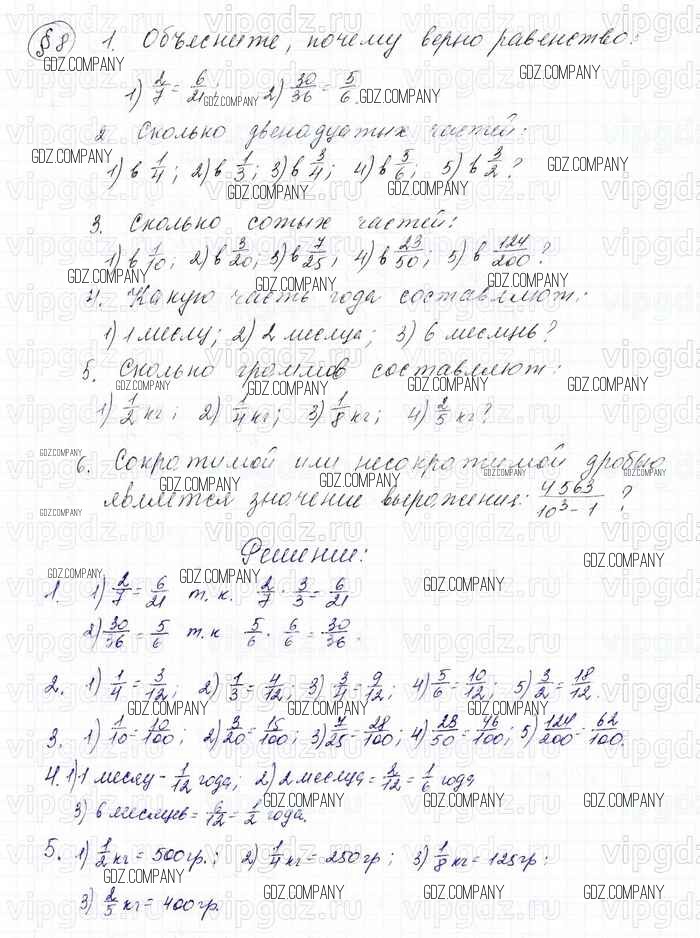 §8 1. Объясните, почему верно равенство:
1) 2/7 = 6/21; 2) 30/36 = 5/6.
2. Сколько двенадцатых частей:
1) в 1/4; 2) в 1/3; 3) в 3/4; 4) в 5/6; 5) в 3/2?
3. Сколько сотых частей:
1) в 1/10; 2) в 3/20; 3) в 7/25; 4) в 23/50; 5) в 124/200?
4. Какую часть года составляют:
1) 1 месяц; 2) 2 месяца; 3) 6 месяцев?
5. Сколько граммов составляют:
1) 1/2 кг; 2) 1/4 кг; 3) 1/8 кг; 4) 2/5 кг?
6. Сократимой или несократимой дробью
является значение выражения: 4563/10³-1 ?
Решение:
1. 1) 2/7 = 6/21 т.к. 2/7 · 3/3 = 6/21
2) 30/36 = 5/6 т.к 5/6 · 6/6 = 30/36.
2. 1) 1/4 = 3/12; 2) 1/3 = 4/12; 3) 3/4 = 9/12; 4) 5/6 = 10/12; 5) 3/2 = 18/12.
3. 1) 1/10 = 10/100; 2) 3/20 = 15/100; 3) 7/25 = 28/100; 4) 23/50 = 46/100; 5) 124/200 = 62/100.
4. 1) 1 месяц - 1/12 года; 2) 2 месяца = 2/12 = 1/6 года
3) 6 месяцев = 6/12 = 1/2 года.
5. 1) 1/2 кг = 500гр.; 2) 1/4 кг = 250гр; 3) 1/8 кг = 125гр;
3) 2/5 кг = 400гр.
GDZ.COMPANY
vipgdz.ru